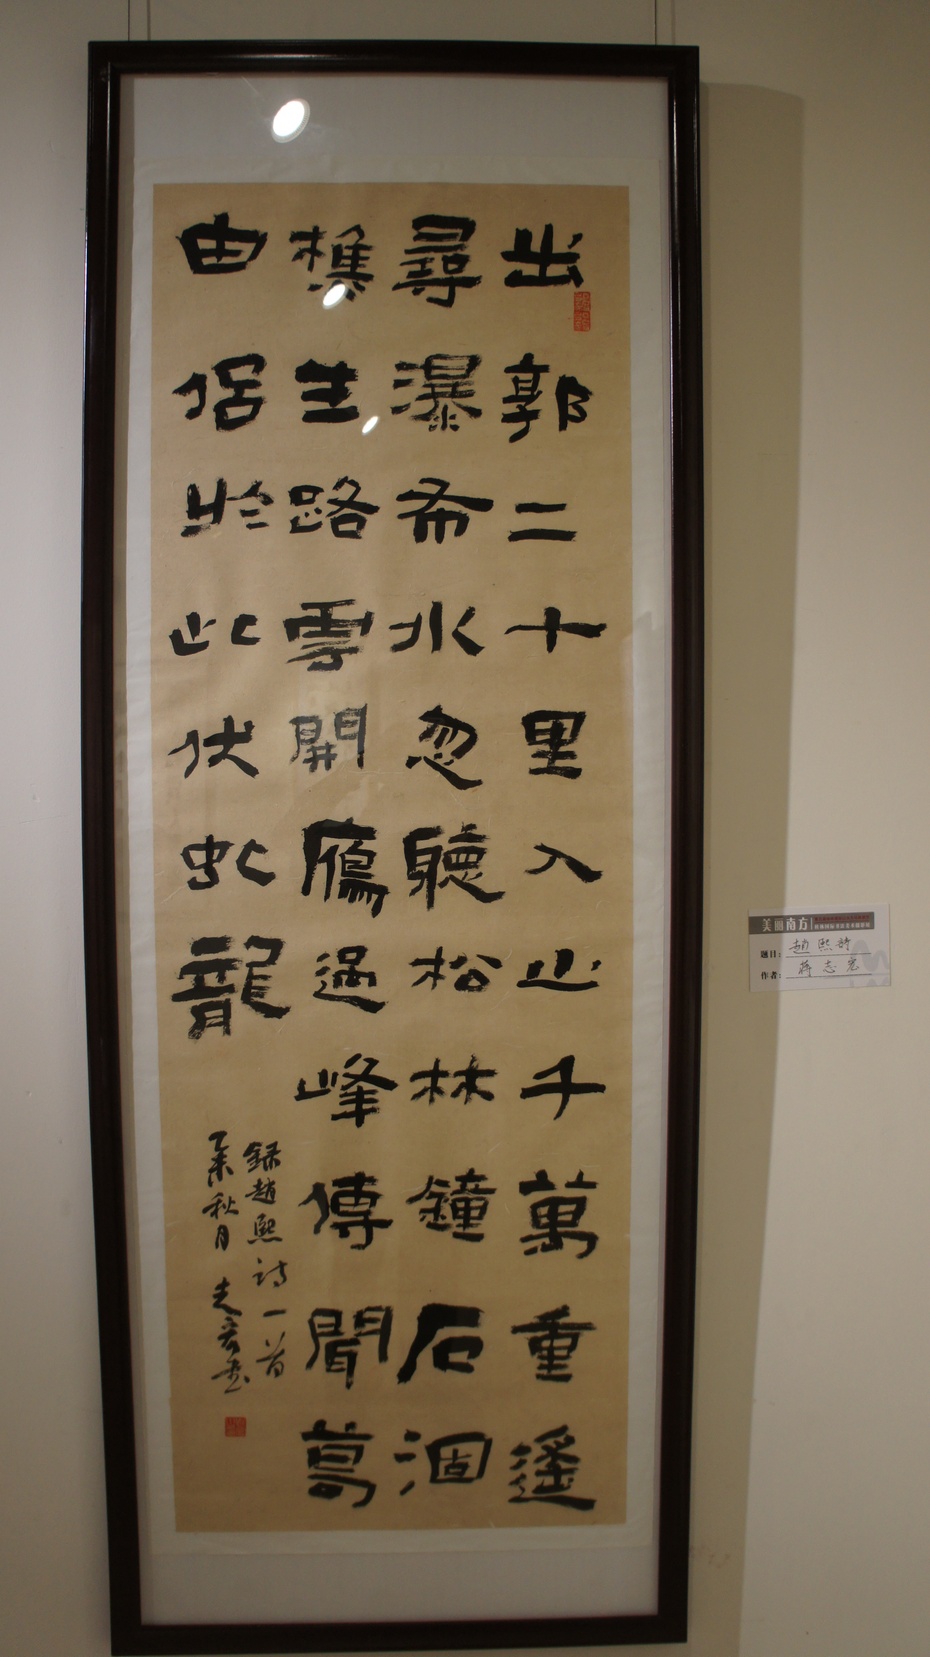 出郭二十里入山千萬重遙
尋瀑布水忽聽松林鐘石涸
樵生路雲開鴈過峰傳聞葛
由侶於此伏虬龍
録趙熙詩一首
乙未秋月
美丽南方
题目：趙熙詩
作者：蒋志宏